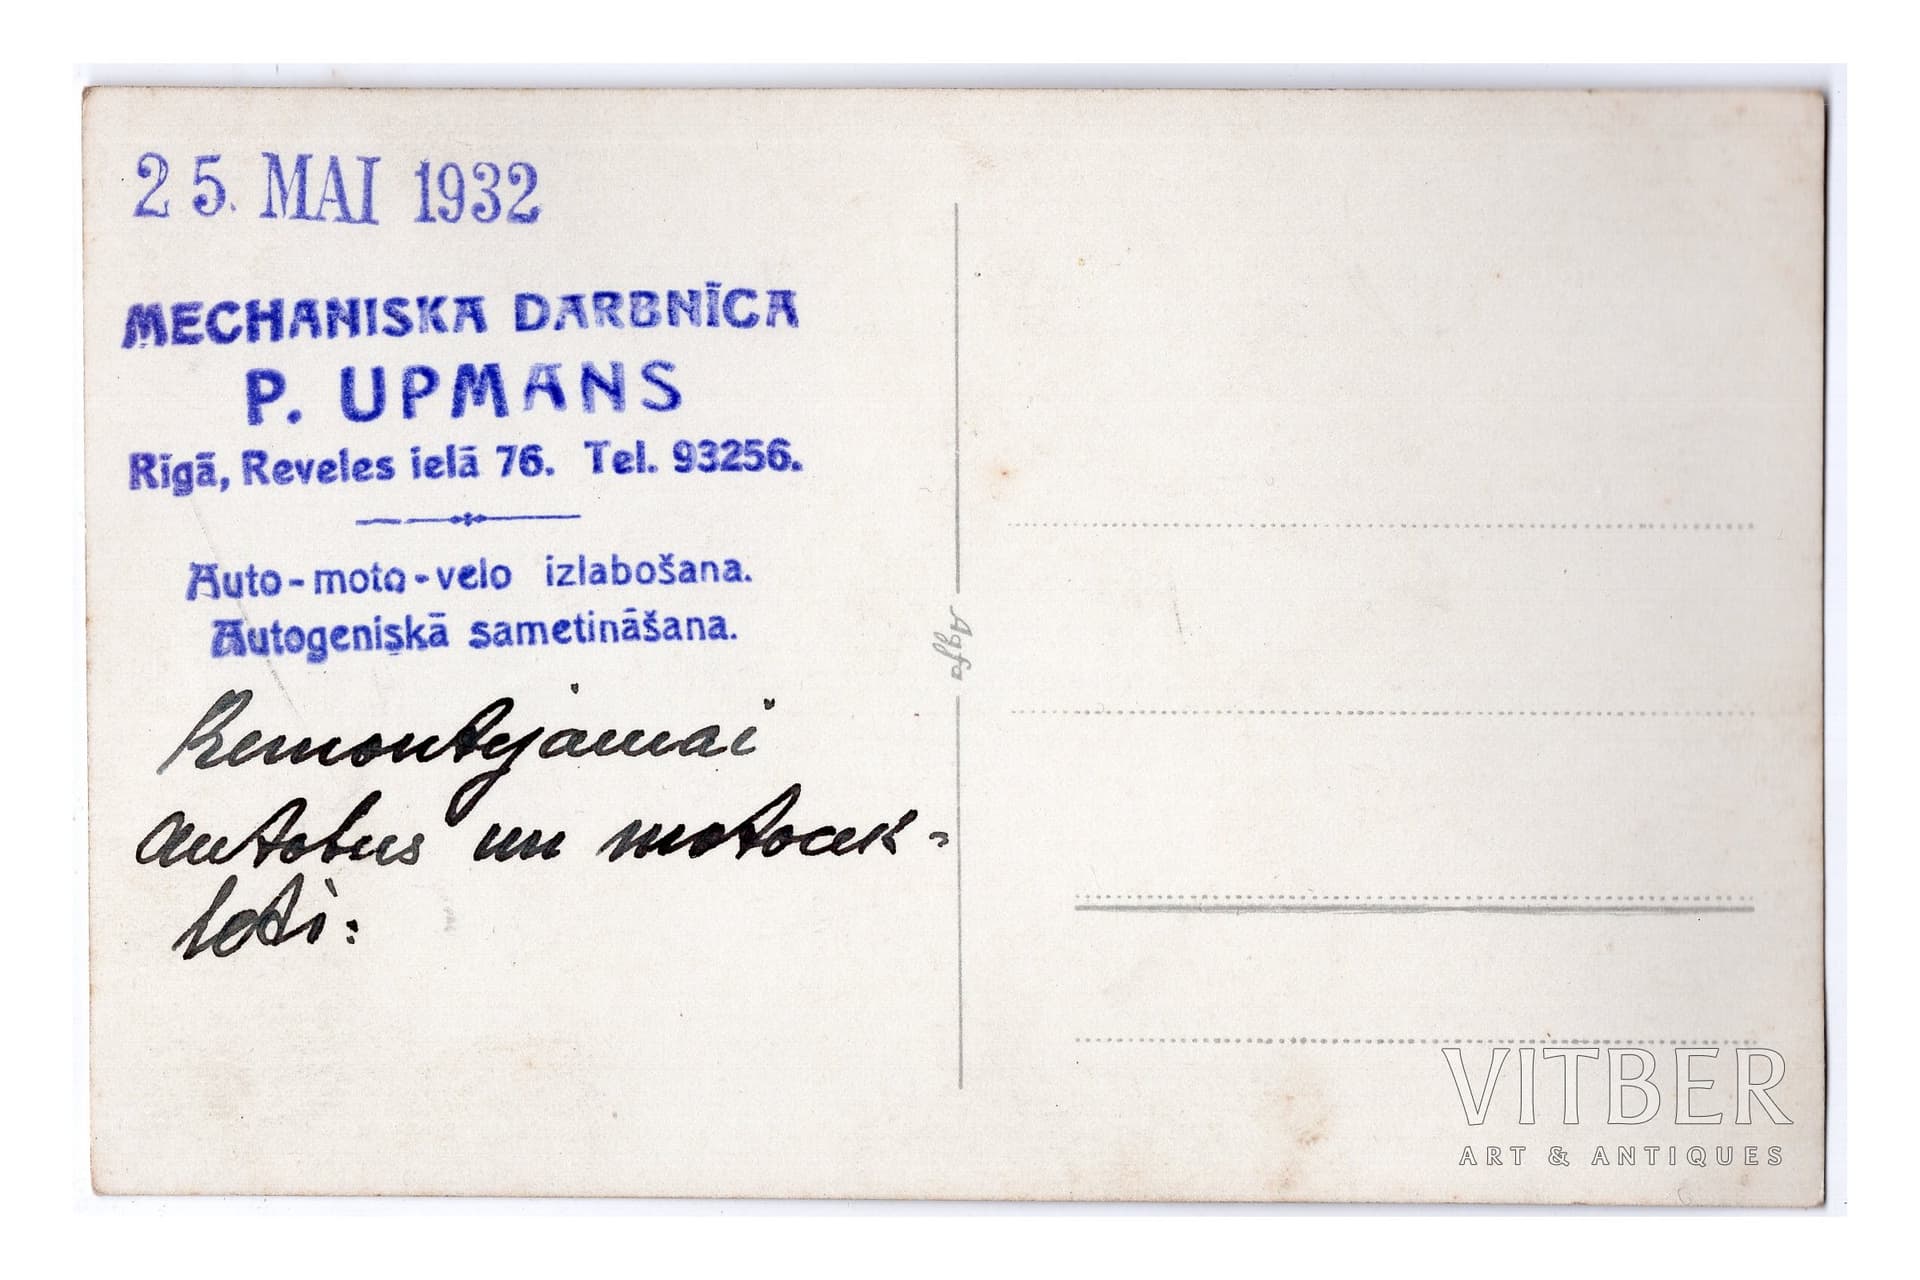 25. MAI 1932
MECHANISKA DARBNĪCA
P. UPMANS
Rīgā, Reveles ielā 76. Tel. 93256.
Auto-moto-velo izlabošana.
Autogeniskā sametināšana.
Remontejamai
autobus un motocik-
leti:
Agfa
VITBER
ART & ANTIQUES